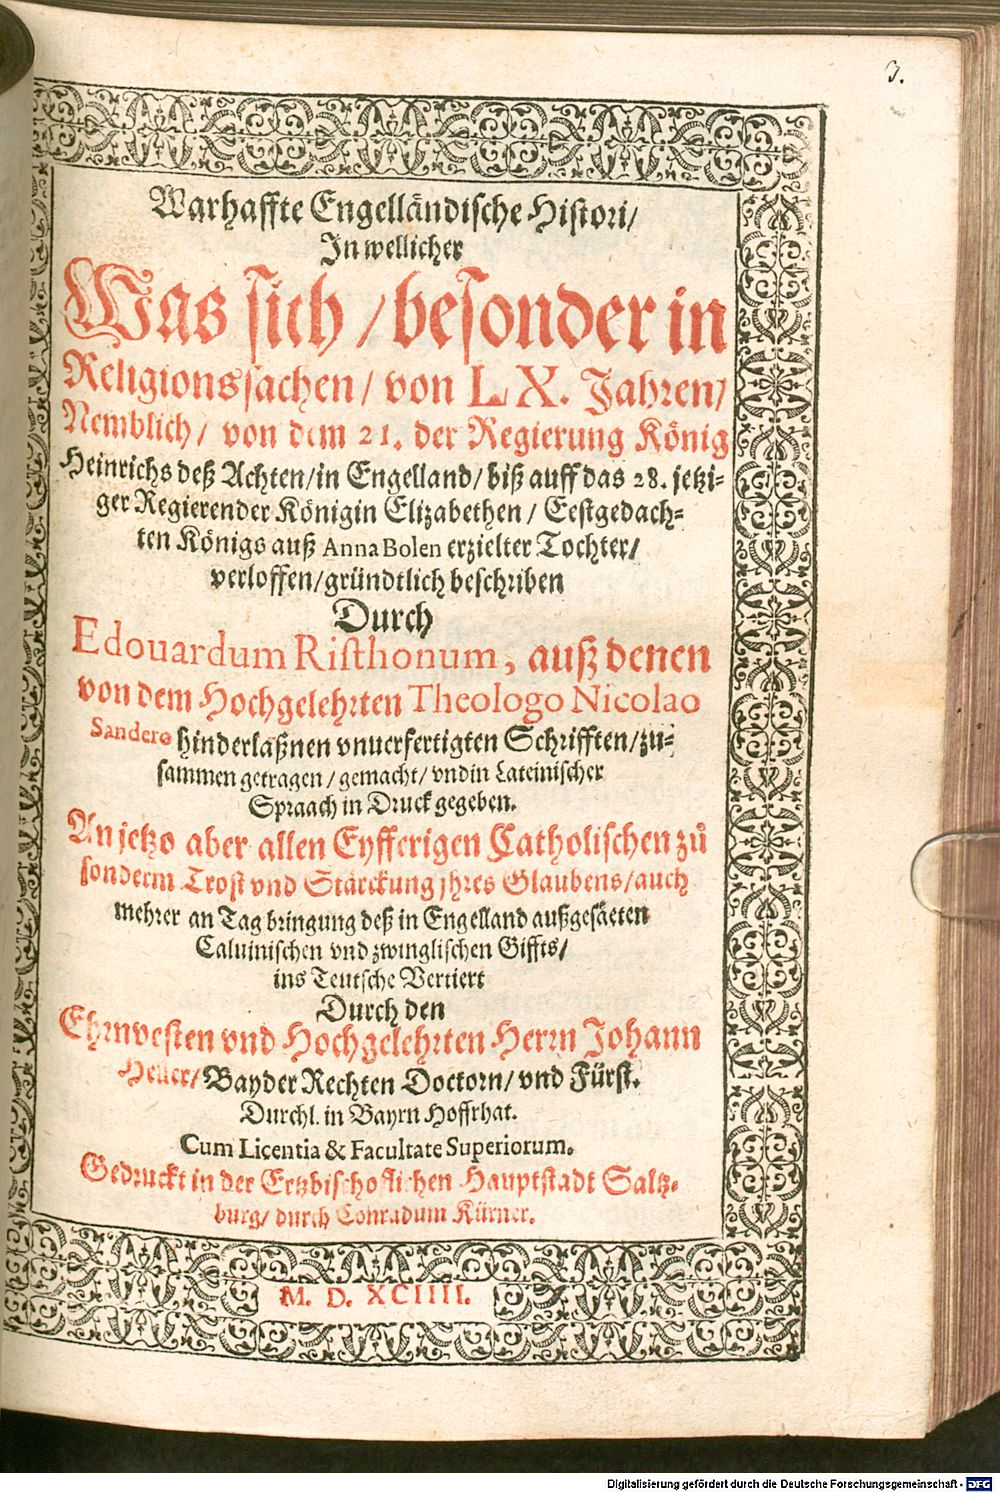 3.
Warhaffte Engelländische Histori/
In wellicher
Was sich / besonder in
Religionssachen / von LX. Jahren/
Nemblich / von dem 21. der Regierung König
Heinrichs deß Achten / in Engelland / biß auff das 28. jetzi-
ger Regierender Königin Elizabethen / Eestgedach-
ten Königs auß Anna Bolen erzielter Tochter/
verloffen / gründtlich beschriben
Durch
Edouardum Risthonum, auß denen
von dem Hochgelehrten Theologo Nicolao
Sandero hinderlaßnen vnuerfertigten Schrifften / zu-
sammen getragen / gemacht / vnd in Lateinischer
Spraach in Druck gegeben.
An jetzo aber allen Eyfferigen Catholischen zů
sonderm Trost vnd Stärckung jhres Glaubens / auch
mehrer an Tag bringung deß in Engelland außgesäeten
Caluinischen vnd zwinglischen Giffts/
ins Teutsche Vertiert
Durch den
Ehrnvesten vnd Hochgelehrten Herrn Johann
Heller / Bayder Rechten Doctorn / vnd Fürst.
Durchl. in Bayrn Hoffrhat.
Cum Licentia & Facultate Superiorum.
Gedruckt in der Ertzbischoflichen Hauptstadt Saltz-
burg / durch Conradum Kürner.
M. D. XCIIII.
Digitalisierung gefördert durch die Deutsche Forschungsgemeinschaft - DFG